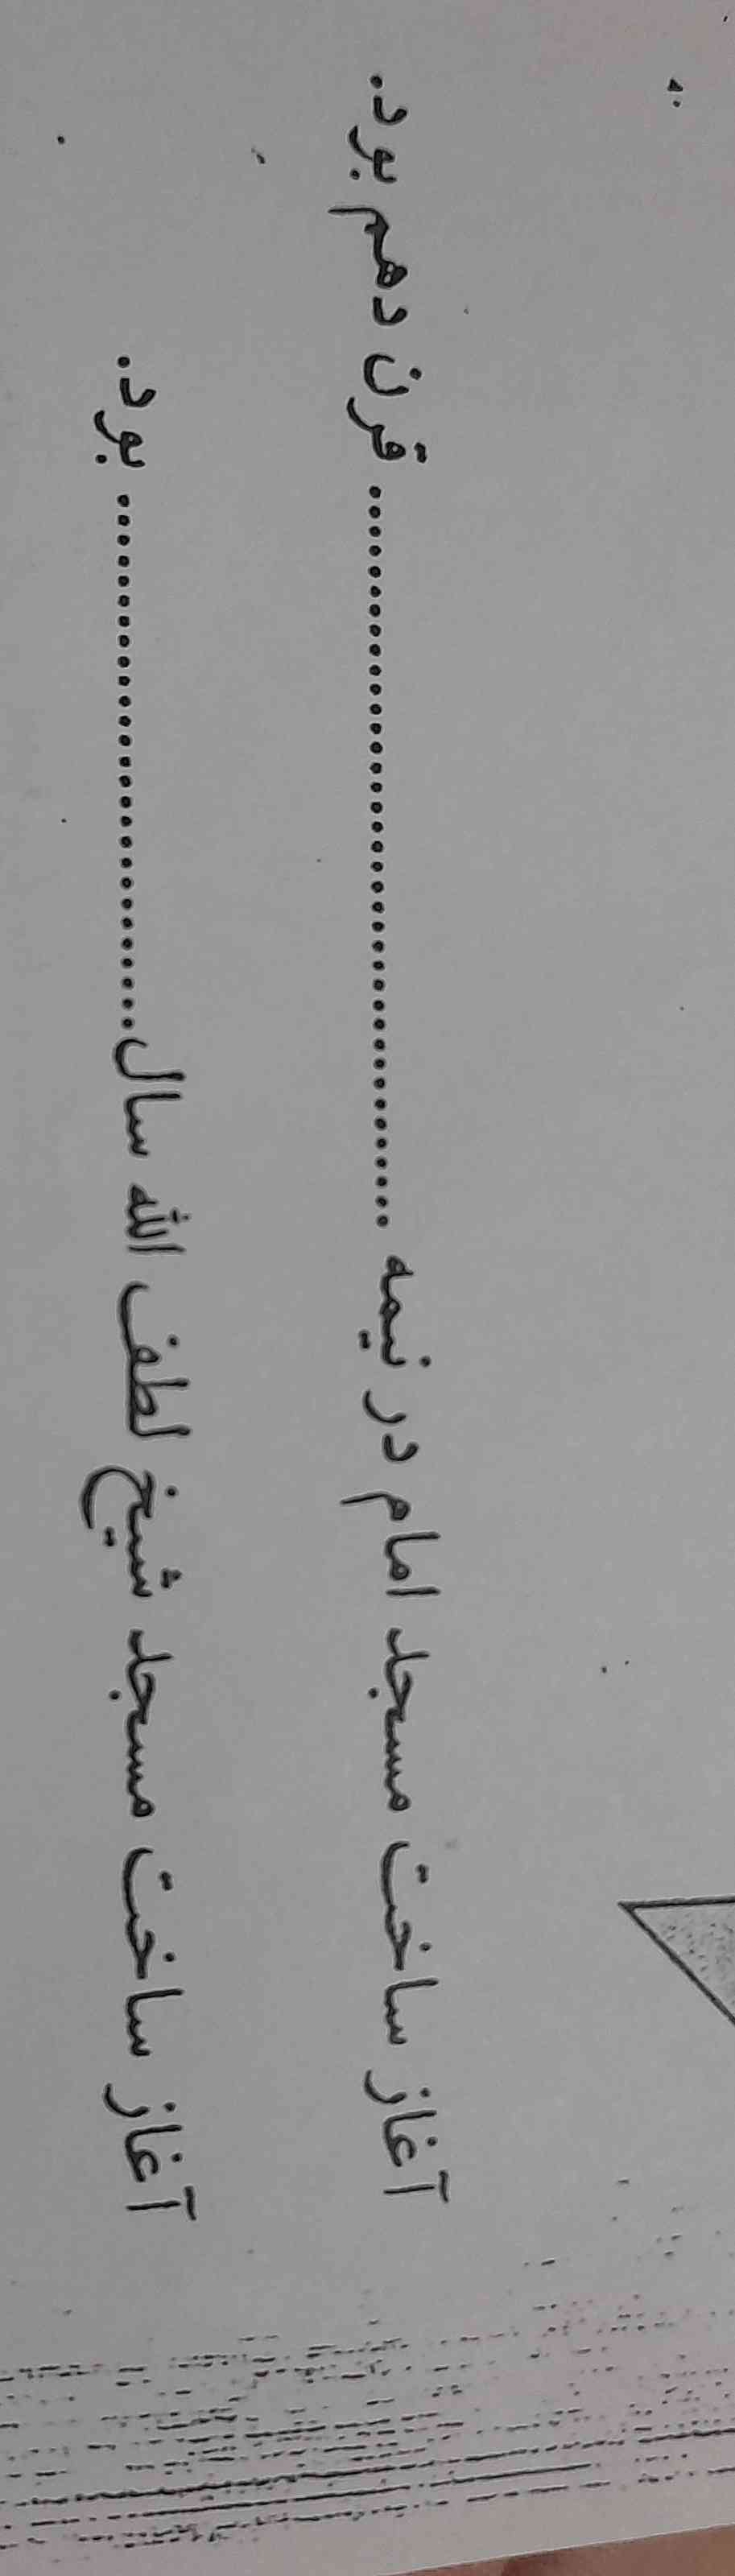 آغاز ساخت مسجد امام در نیمه ...................................... قرن دهم بود.
آغاز ساخت مسجد شیخ لطف الله سال........................... بود.